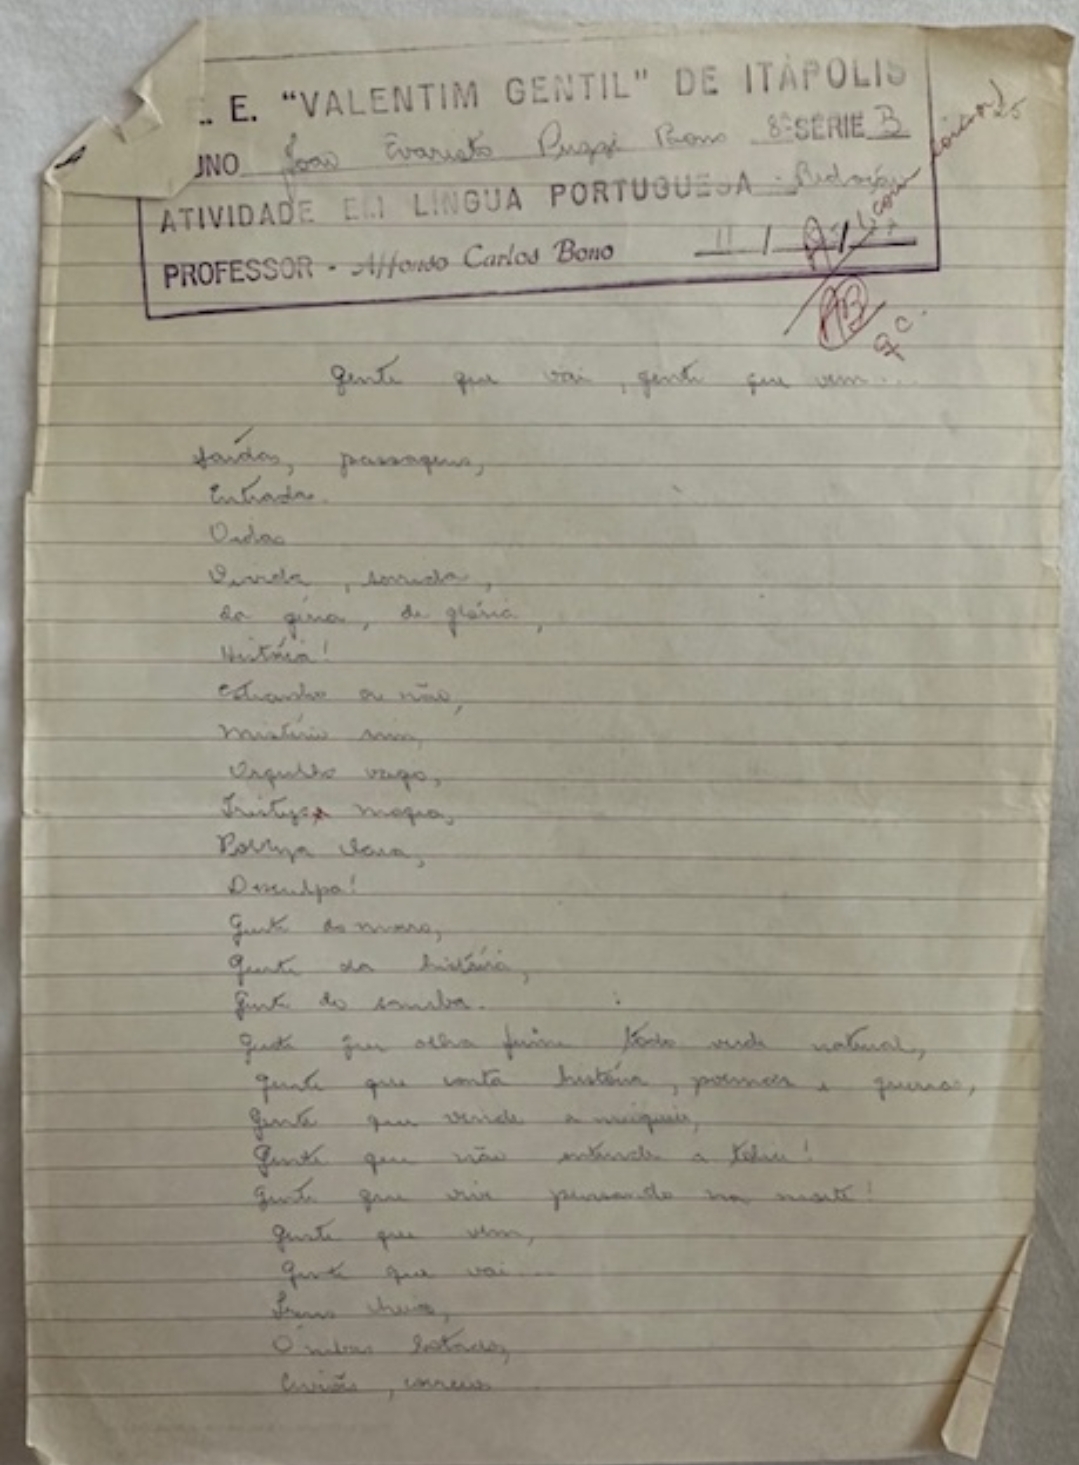 . E. "VALENTIM GENTIL" DE ITÁPOLIS
UNO João Evaristo Puzzi Bono 8ª SÉRIE B
ATIVIDADE EM LÍNGUA PORTUGUESA - Redação
PROFESSOR - Affonso Carlos Bono 11 / /
Gente que vai, gente que vem...
Saídas, passagens,
Entradas.
Vidas
Vivida, sorrida,
da gíria, de glória,
História!
Estranho ou não,
Mistério sim,
Orgulho vago,
Tristeza magra,
Pobreza clara,
Desculpa!
Gente do morro,
Gente da história,
Gente do samba.
Gente que olha todo verde natural,
Gente que conta história, poemas e guerras,
Gente que vende a
Gente que não entende a
Gente que vive pensando na morte!
Gente que vem,
Gente que vai...
Trens cheios,
Ônibus lotados,
Aviões, correios